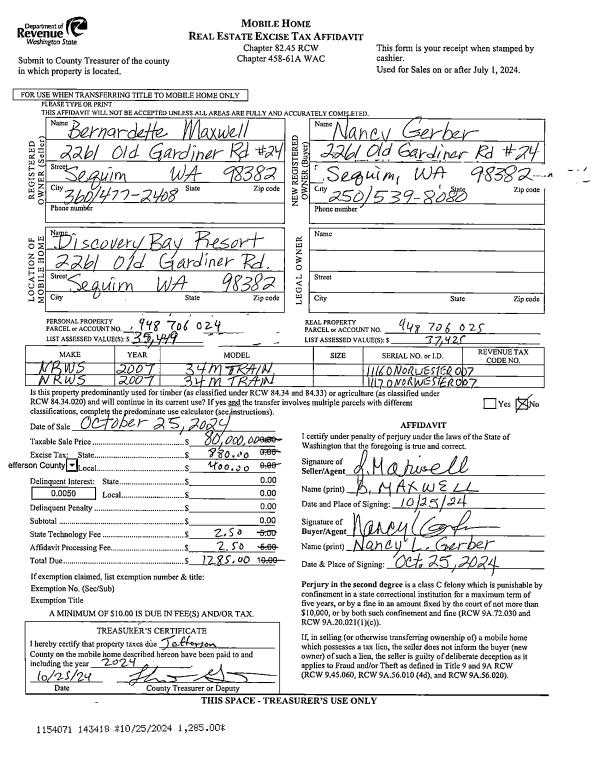 Department of
Revenue
Washington State
Submit to County Treasurer of the county
in which property is located.
MOBILE HOME
REAL ESTATE EXCISE TAX AFFIDAVIT
Chapter 82.45 RCW
Chapter 458-61A WAC
This form is your receipt when stamped by
cashier.
Used for Sales on or after July 1, 2024.
FOR USE WHEN TRANSFERRING TITLE TO MOBILE HOME ONLY
PLEASE TYPE OR PRINT
THIS AFFIDAVIT WILL NOT BE ACCEPTED UNLESS ALL AREAS ARE FULLY AND ACCURATELY COMPLETED.
REGISTERED
OWNER (Seller)
Name Bernardette Maxwell
2261 Old Gardiner Rd #24
Street Sequim WA 98382
City 360/477-2408 State Zip code
Phone number
NEW REGISTERED
OWNER (Buyer)
Name Nancy Gerber
2261 Old Gardiner Rd #24
Sequim, WA 98382
City 250/539-8080 State Zip code
Phone number
LOCATION OF
MOBILE HOME
Name Discovery Bay Resort
2261 Old Gardiner Rd.
Street Sequim WA 98382
City State Zip code
LEGAL OWNER
Name
Street
City State Zip code
PERSONAL PROPERTY
PARCEL or ACCOUNT NO. 948 706 024
LIST ASSESSED VALUE(S): $ 35,449
REAL PROPERTY
PARCEL or ACCOUNT NO. 948 706 025
LIST ASSESSED VALUE(S): $ 37,425
MAKE YEAR MODEL SIZE SERIAL NO. or I.D. REVENUE TAX CODE NO.
NRWS 2007 34M TRAIN 1116ONORWESTER007
NRWS 2007 34M TRAIN 1117ONORWESTER007
Is this property predominantly used for timber (as classified under RCW 84.34 and 84.33) or agriculture (as classified under
RCW 84.34.020) and will continue in its current use? If yes and the transfer involves multiple parcels with different
classifications, complete the predominate use calculator (see instructions).
Yes No
Date of Sale October 25, 2024
Taxable Sale Price $ 80,000.00 0.00
Excise Tax: State $ 880.00 0.00
efferson County Local $ 400.00 0.00
Delinquent Interest: State $ 0.00
0.0050 Local $ 0.00
Delinquent Penalty $ 0.00
Subtotal $ 0.00
State Technology Fee $ 2.50 5.00
Affidavit Processing Fee $ 2.50 5.00
Total Due $ 1285.00 10.00
If exemption claimed, list exemption number & title:
Exemption No. (Sec/Sub)
Exemption Title
A MINIMUM OF $10.00 IS DUE IN FEE(S) AND/OR TAX.
TREASURER'S CERTIFICATE
I hereby certify that property taxes due Jefferson
County on the mobile home described hereon have been paid to and
including the year 2024
10/25/24
Date County Treasurer or Deputy
AFFIDAVIT
I certify under penalty of perjury under the laws of the State of
Washington that the foregoing is true and correct.
Signature of
Seller/Agent Maxwell
Name (print) B. MAXWELL
Date and Place of Signing: 10/25/24
Signature of
Buyer/Agent Nancy
Name (print) Nancy L. Gerber
Date & Place of Signing: Oct. 25, 2024
Perjury in the second degree is a class C felony which is punishable by
confinement in a state correctional institution for a maximum term of
five years, or by a fine in an amount fixed by the court of not more than
$10,000, or by both such confinement and fine (RCW 9A.72.030 and
RCW 9A.20.021(1)(c)).
If, in selling (or otherwise transferring ownership of) a mobile home
which possesses a tax lien, the seller does not inform the buyer (new
owner) of such a lien, the seller is guilty of deliberate deception as it
applies to Fraud and/or Theft as defined in Title 9 and 9A RCW
(RCW 9.45.060, RCW 9A.56.010 (4d), and RCW 9A.56.020).
THIS SPACE - TREASURER'S USE ONLY
1154071 143418 *10/25/2024 1,285.00*